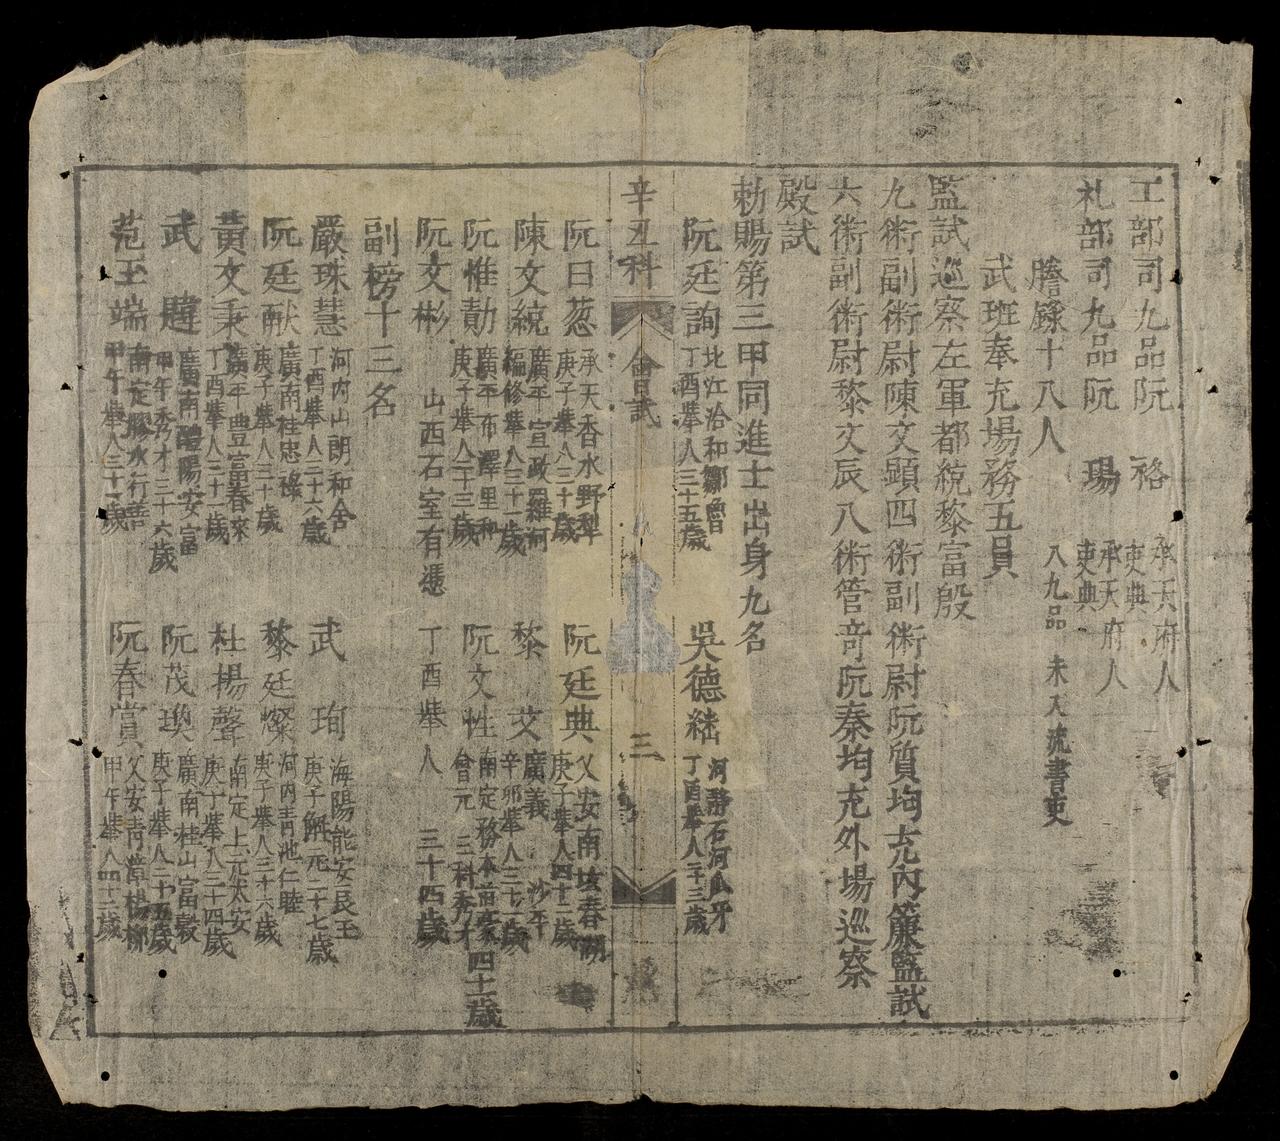 工部司九品阮 袼 承天府人吏典
礼部司九品阮 瑒 承天府人吏典
謄錄十八人 八九品 未入流書吏
武班奉充場務五員
監試巡察左軍都統黎富殷
九術副術尉陳文顕四術副術尉阮質均充內簾監試
六術副術尉黎文辰八術管竒阮秦均充外場巡察
殿試
勅賜第三甲同進士出身九名
阮廷詢 北江洽和 丁酉舉人三十五歲
吳德 河靜石河 丁酉舉人二十三歲
辛丑科 會試 三
阮曰 承天香水野犁 庚子舉人三十歲
阮廷典 乂安南坛春湖 庚子舉人四十二歲
陳文統 廣平宣政羅河 編修舉人三十一歲
黎 艾 廣義 沙平 辛卯舉人三十一歲
阮惟勣 廣平布澤里和 庚子舉人二十三歲
阮文性 南定務本前 會元 三科秀才 四十一歲
阮文彬 山西石室有憑 丁酉舉人 三十四歲
副榜十三名
嚴珠慧 河內山朗和舍 丁酉舉人二十六歲
武 珣 海陽能安 庚子觧元二十七歲
阮廷猷 廣南桂忠祿 庚子舉人三十歲
黎廷燦 河內青池仁睦 庚子舉人三十六歲
黃文秉 廣平豊富春來 丁酉舉人三十二歲
杜楊聲 南定上元太安 舉人三十四歲
武 廣南醴陽安富 甲午秀才三十六歲
阮茂 廣南桂山富 庚子舉人二十五歲
范玉端 南定膠水行善 甲午舉人三十一歲
阮春賞 乂安青漳楊柳 甲午舉人四十二歲